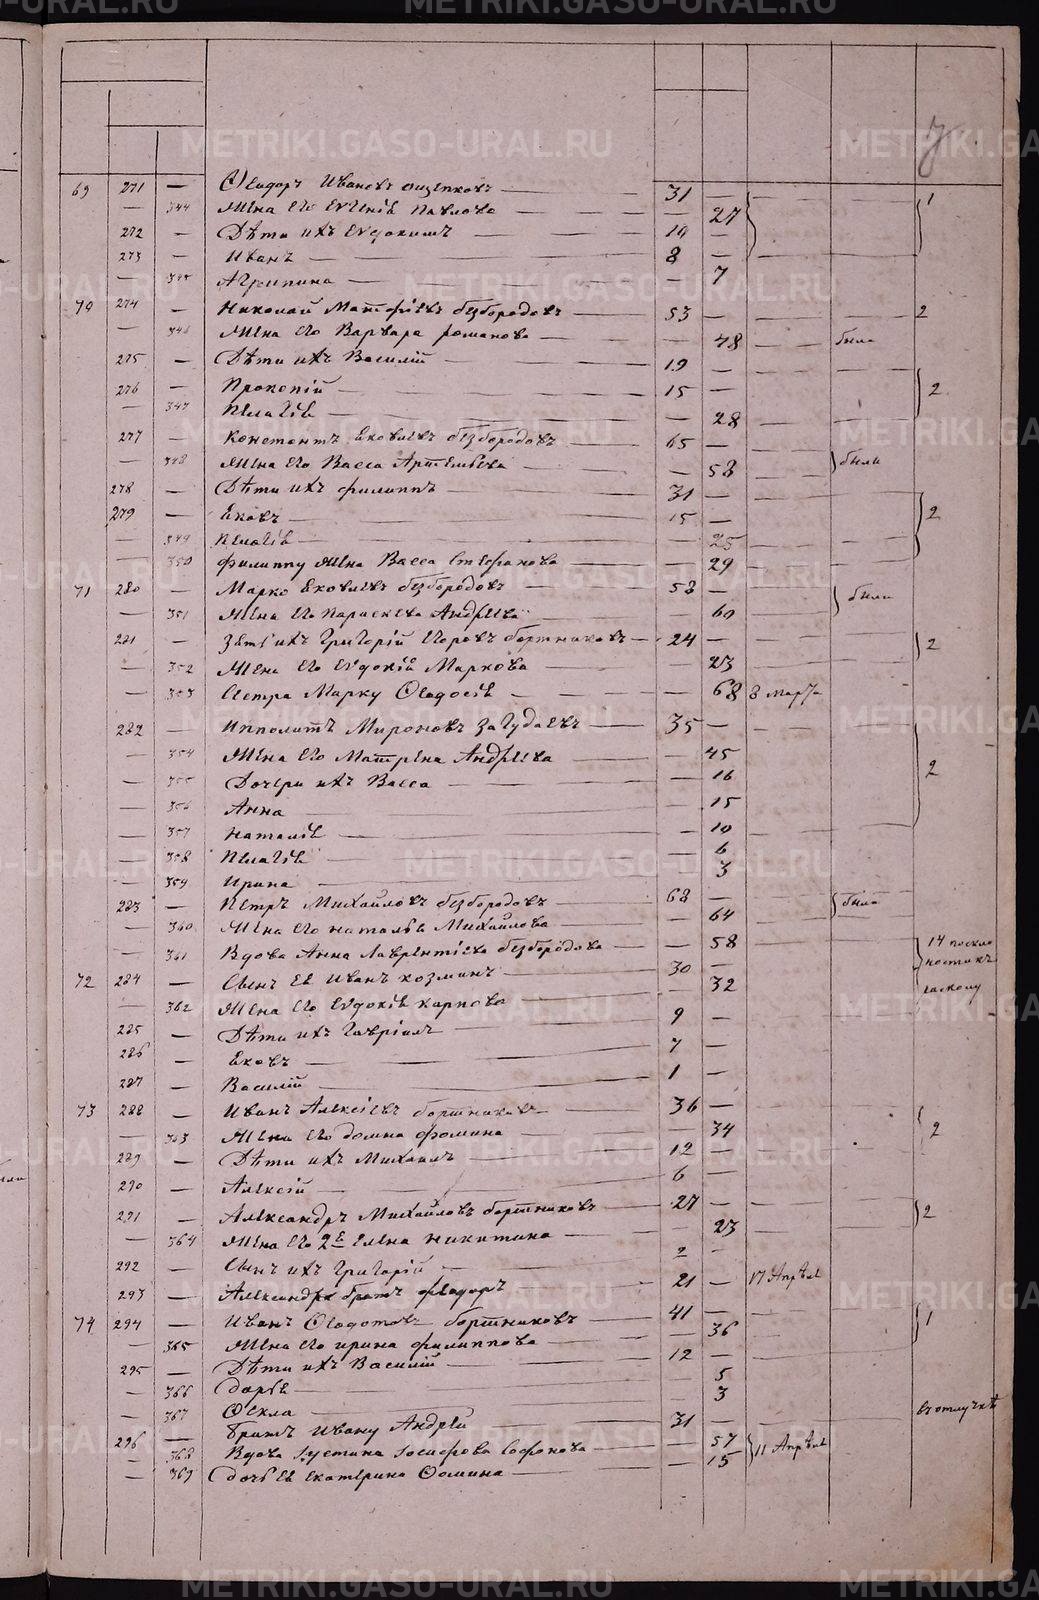 7
69 271 — Ѳеодоръ Ивановъ 31 — 1
— 344 Жена его Евгенія Павлова — 27
272 — Дѣти ихъ Евдокимъ —
273 — Иванъ 8 —
— 345 Агрипина — 7
70 274 — Николай Матфіевъ безбородовъ 53 — 2
— 346 Жена его Варвара романова — 48 была
275 — Дѣти ихъ Василій 19 —
276 — Прокопій 15 — 2
— 347 Пелагія — 28
277 — Яковлевъ безбородовъ 65 —
— 348 Жена его Васса Артемьева — 58 были
278 — Дѣти ихъ филиппъ 31 —
279 — Яковъ 15 — 2
— 349 Пелагія — 25
— 350 филиппу жена Васса Стефанова — 29
71 280 — Марко Яковлевъ безбородовъ 58 —
— 351 Жена его Параскева Андреева — 60 были
281 — Зять ихъ Григорій Егоровъ бортниковъ 24 — 2
— 352 Жена его Евдокія Маркова — 23
— 353 Сестра Марку Ѳеодосія — 68 8 марта
282 — Ипполитъ Мироновъ 35 —
— 354 Жена его Матрена Андреева — 45
— 355 Дочери ихъ Васса — 16 2
— 356 Анна — 15
— 357 Наталія — 10
— 358 Пелагія — 6
— 359 Ирина — 3
283 — Петръ Михайловъ безбородовъ 68 —
— 360 Жена его наталья Михайлова — 64
— 361 Вдова Анна Лаврентіева безбородова — 58 14
72 284 — Сынъ ея Иванъ козминъ 30 —
— 362 Жена его Евдокія карпова — 32
285 — Дѣти ихъ Гавріилъ 9 —
286 — Яковъ 7 —
287 — Василій 1 —
73 288 — Иванъ Алексіевъ бортниковъ 36 —
— 363 Жена его домна фомина — 34 2
289 — Дѣти ихъ Михаилъ 12 —
290 — Алексій 6 —
291 — Александръ Михайловъ бортниковъ 27 — 2
— 364 Жена его 2я Елена никитина — 23
292 — Сынъ ихъ Григорій 2 —
293 — Александра братъ феодоръ 21 — 17 Апрѣля
74 294 — Иванъ Ѳеодотовъ бортниковъ 41 — 1
— 365 Жена его ирина филиппова — 36
295 — Дѣти ихъ Василій 12 —
— 366 дарья — 5
— 367 Ѳекла — 3
296 — братъ Ивану Андрей 31 — въ отлучкѣ
— 368 Вдова Іустина Іосифова Софонова — 57 11 Апрѣля
— 369 дочь ея Екатерина Ѳомина — 15
METRIKI.GASO-URAL.RU